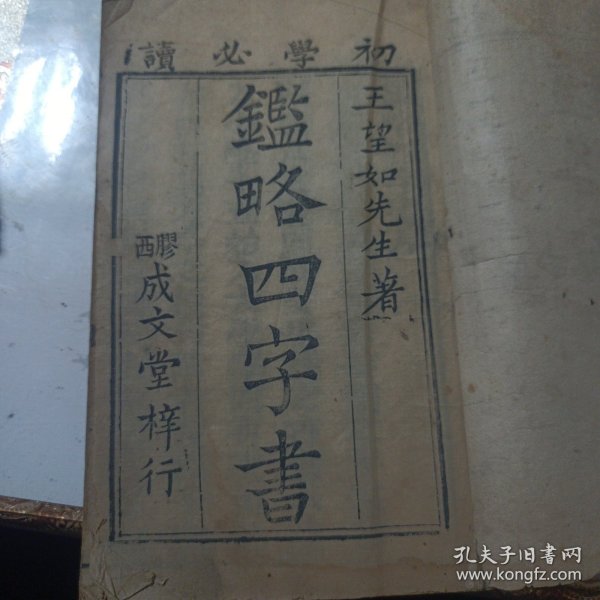 初學必讀
王望如先生著
鑑略四字書
膠西成文堂梓行
孔夫子旧書网
www.kongfz.com